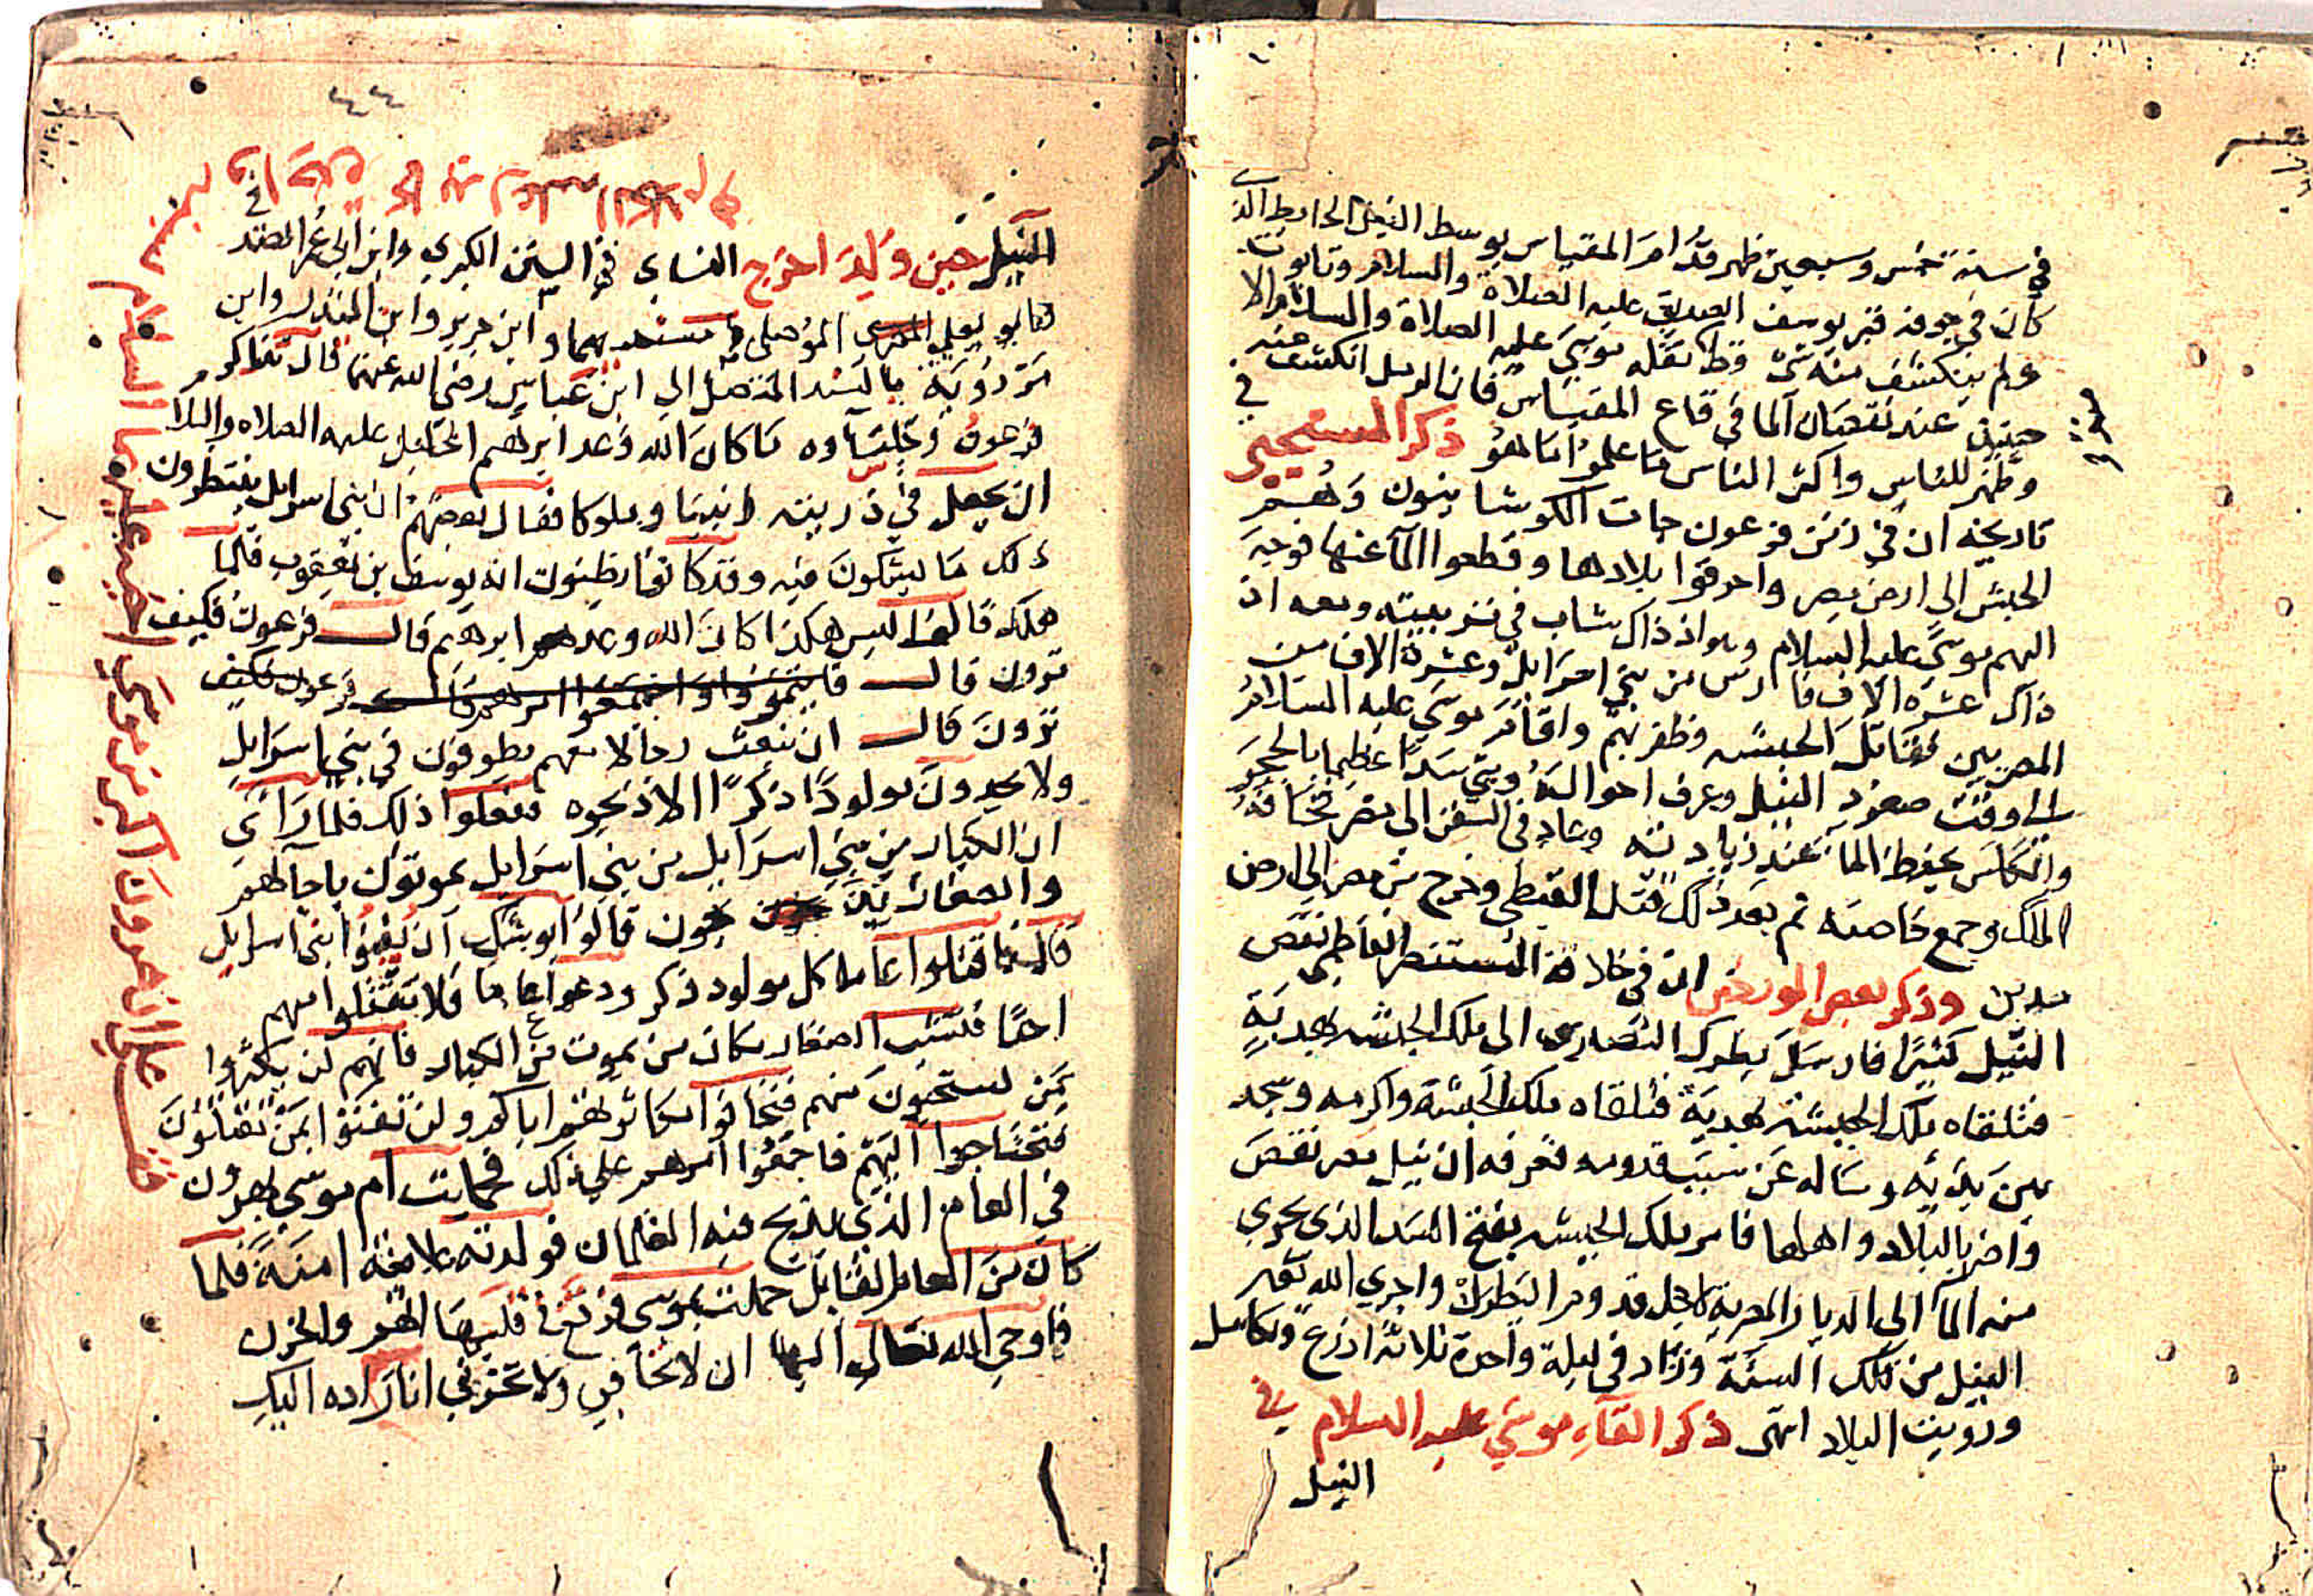 في سنة خمس وسبعين ظهر قدام المقياس بوسط النيل الحايط الذي
كان في جوفه قبر يوسف الصديق عليه الصلاة والسلام وتابوت
ولم ينكشف منه شي قط نقله موسى عليه الصلاة والسلام الا
حينئذ عند نقصان الما في قاع المقياس فان الرمل انكشف عنه
وظهر للناس واكثر الناس ما علموا ما هو ذكر المسبحي في
تاريخه ان في زمن فرعون جات الكوشانيون وهم
الحبش الى ارض مصر واحرقوا بلادها وقطعوا الما عنها فوجه
اليهم موسى عليه السلام وهو اذ ذاك شاب في تربيته ومعه اذ
ذاك عشرة الاف فارس من بني اسرائل وعشرة الاف من
المصريين فقاتل الحبشه وظفر بهم واقام موسى عليه السلام
الى وقت صعود النيل وعرف احواله وبنى سدا عظيما بالحجر
والكلس يحفظ الما عند زيادته وعاد في السفن الى مصر فخافه
الملك وجمع خاصته ثم بعد ذلك قتل القبطي وخرج من مصر الى ارض
مدين وذكر بعض المورخين ان في خلافة المستنصر الفاطمي نقص
النيل كثيرا فارسل بطرك النصارى الى ملك الحبشه بهدية
فتلقاه ملك الحبشه بهدية فتلقاه ملك الحبشة واكرمه وسجد
بين يديه وساله عن سبب قدومه فعرفه ان نيل مصر نقص
واضر بالبلاد واهلها فامر ملك الحبشه بفتح السد الذي يجري
منه الما الى الديار المصرية لاجل قدوم البطرك واجري الله تعـ
النيل من تلك السنة وزاد في ليلة واحدة ثلاثة اذرع وتكامل
ورويت البلاد انتهى ذكر القاء موسى عليه السلام في
النيل
٤٤
النيل حين ولد اخرج النساي في السنن الكبرى وابن ابي عمر العدني في
وابو يعلى الموصلي في مسنديهما وابن جرير وابن المنذر وابن
مردويه بالسند المتصل الى ابن عباس رضي الله عنهما قال تذاكر
فرعون وجلساوه ما كان الله وعد ابرهيم الخليل عليه الصلاه والسلا
ان يجعل في ذريته انبيا وملوكا فقال بعضهم ان بني اسرايل ينتظرون
ذلك ما يشكون فيه وقد كانوا يظنون انه يوسف بن يعقوب فلما
هلك قالوا ليس هكذا كان الله وعد ابرهيم قال فرعون فكيف
ترون قال
ترون قال ان نبعث رجالا معهم يطوفون في بني اسرايل
ولا يجدون مولودا ذكرا الا ذبحوه ففعلوا ذلك فلما راى
ان الكبار من بني اسرايل من بني اسرايل يموتون باجالهم
والصغار يذبحون قالوا يوشك ان يفنوا بني اسرايل
قال فاقتلوا عاما كل مولود ذكر ودعوا عاما فلا تقتلوا منهم
احدا فتشب الصغار مكان من يموت من الكبار فانهم لن يكثروا
بمن تستحيون منهم فتخافوا مكاثرتهم اياكم ولن تفنوا بمن تقتلون
فتحتاجوا اليهم فاجمعوا امرهم على ذلك فحملت ام موسى بهرون
في العام الذي لا يذبح فيه الغلمان فولدته علانية امنة فلما
كان من العام القابل حملت بموسى فوقع في قلبها الهم والحزن
فاوحى الله تعالى اليها ان لا تخافي ولا تحزني انا رادوه اليك
على ان هرون اكبر من موسى